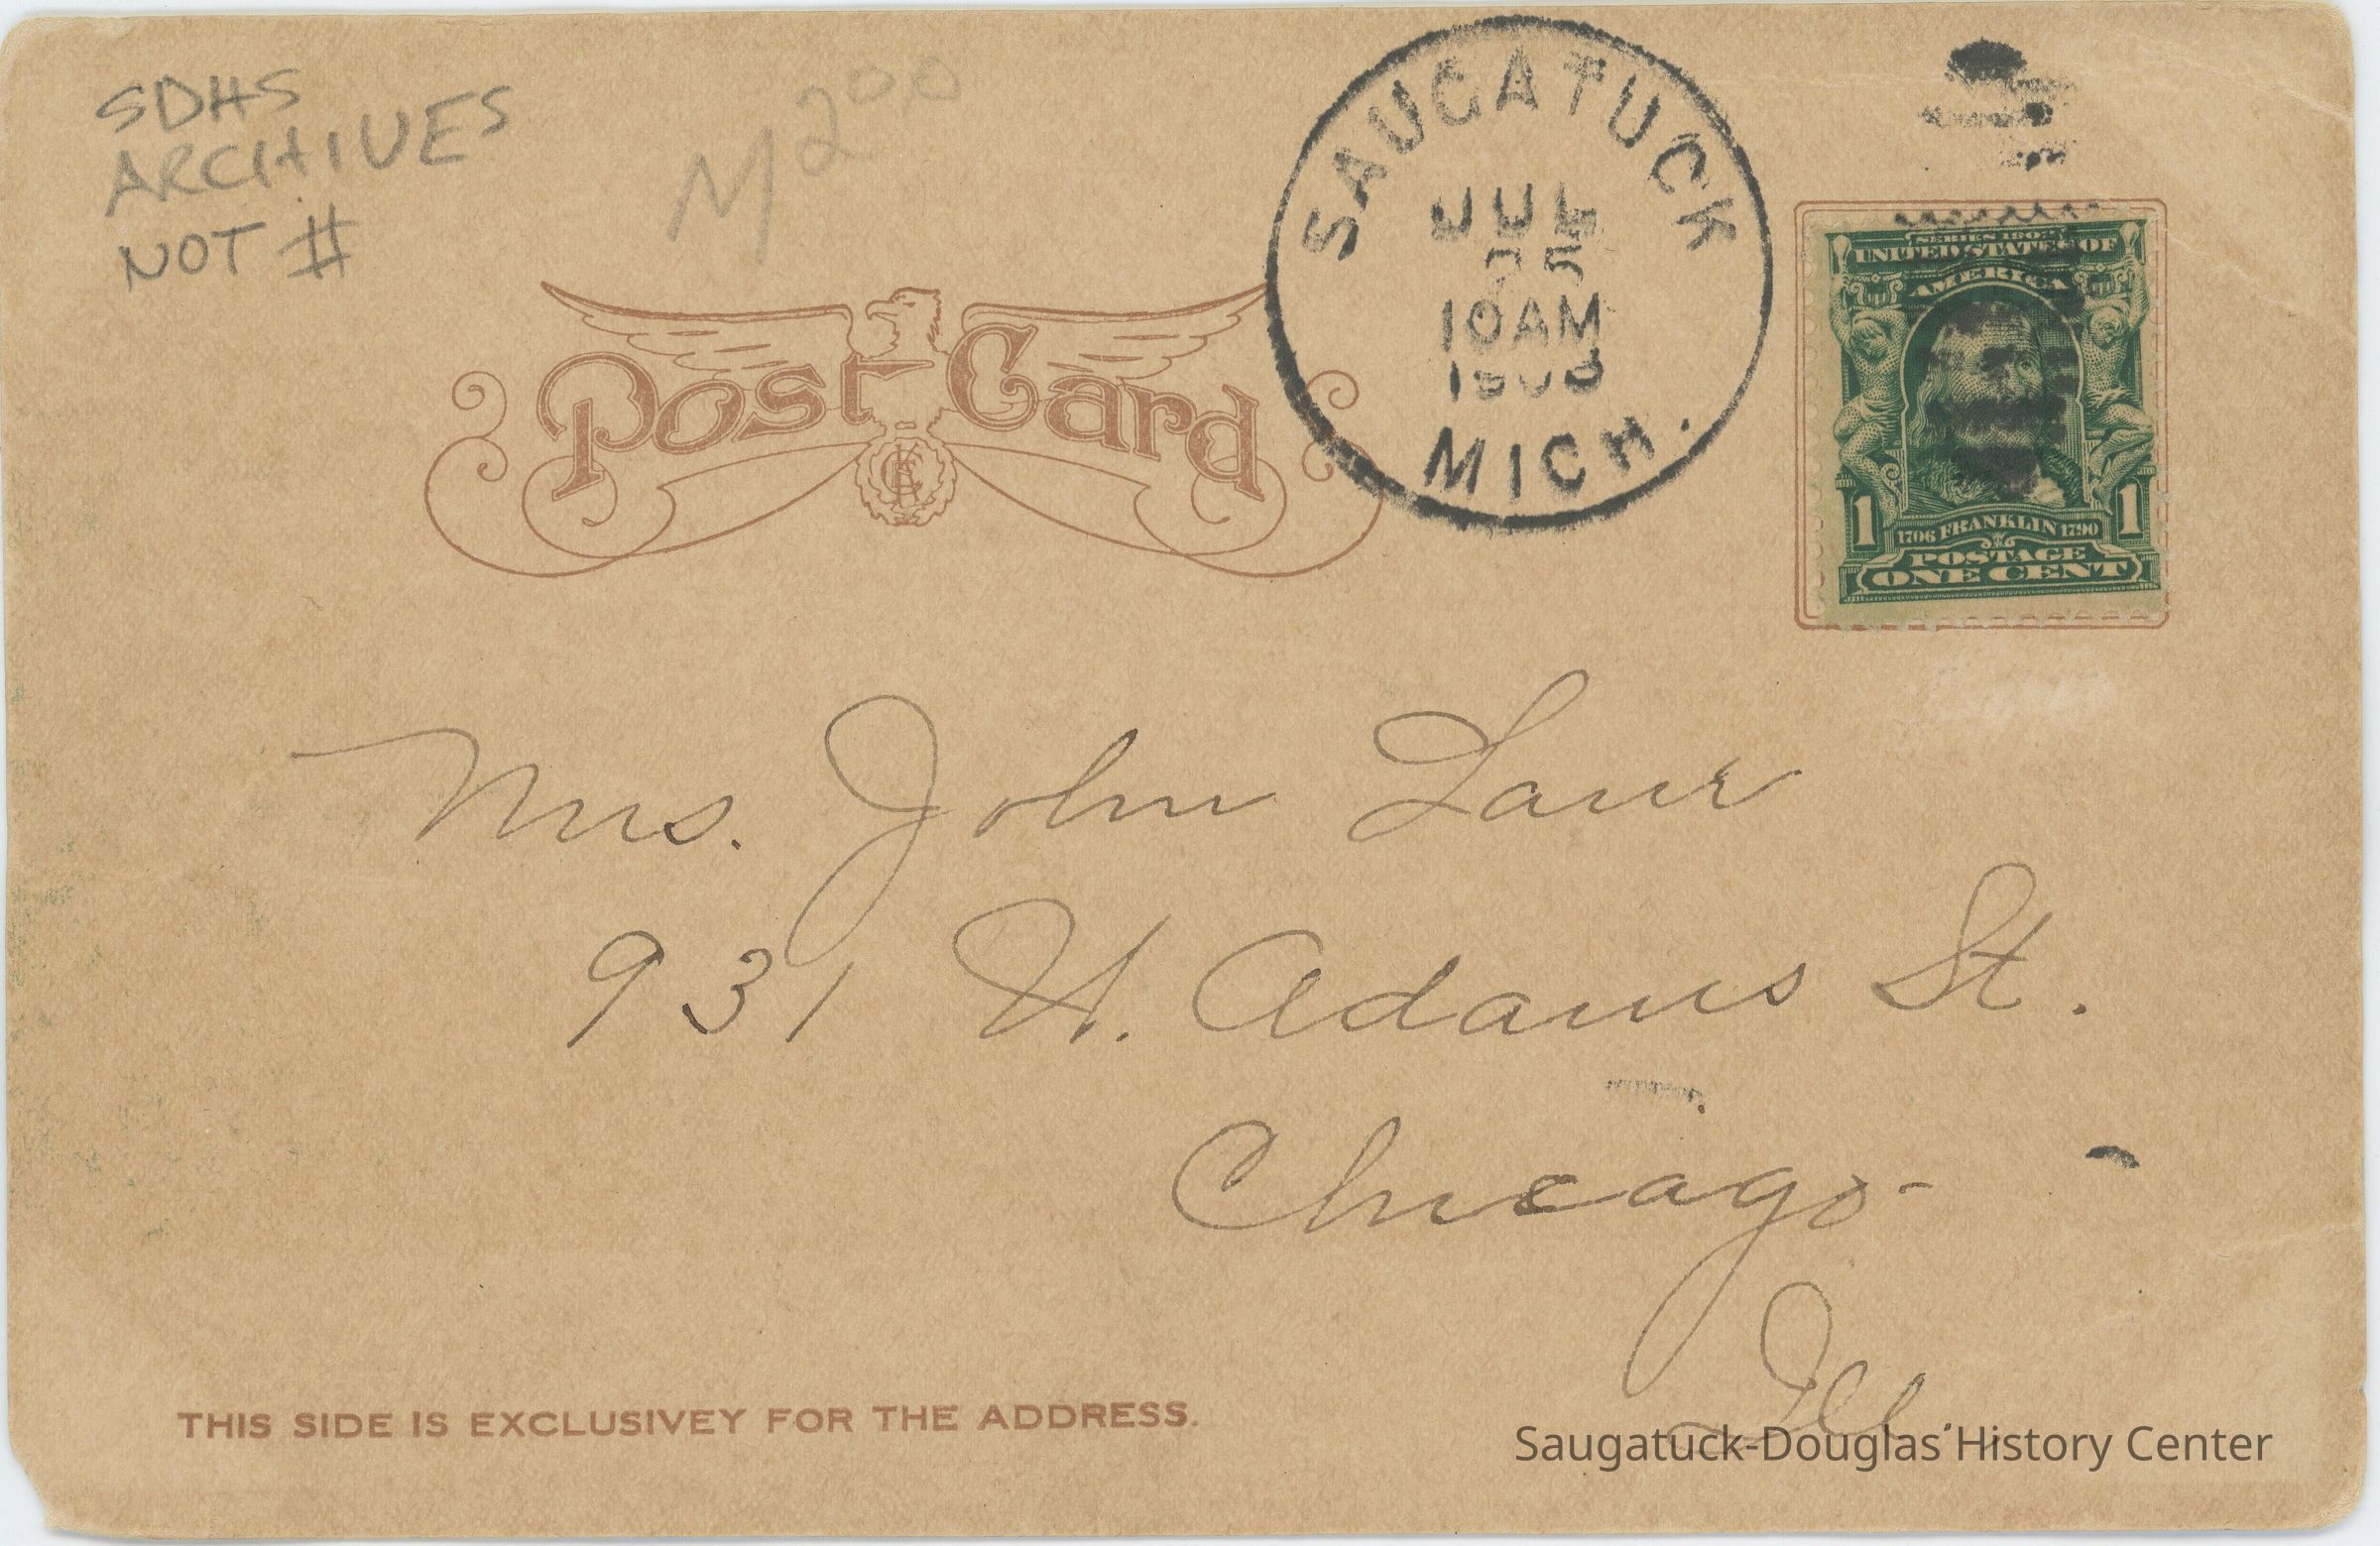 SDHS
ARCHIVES
NOT #
M 2 00
SAUGATUCK
JUL
25
10AM
MICH.
SERIES 1902
UNITED STATES OF
AMERICA
1 1706 FRANKLIN 1790 1
POSTAGE
ONE CENT
Post Card
Mrs. John Laur
931 W. Adams St.
Chicago-
Ill.
THIS SIDE IS EXCLUSIVEY FOR THE ADDRESS.
Saugatuck-Douglas History Center